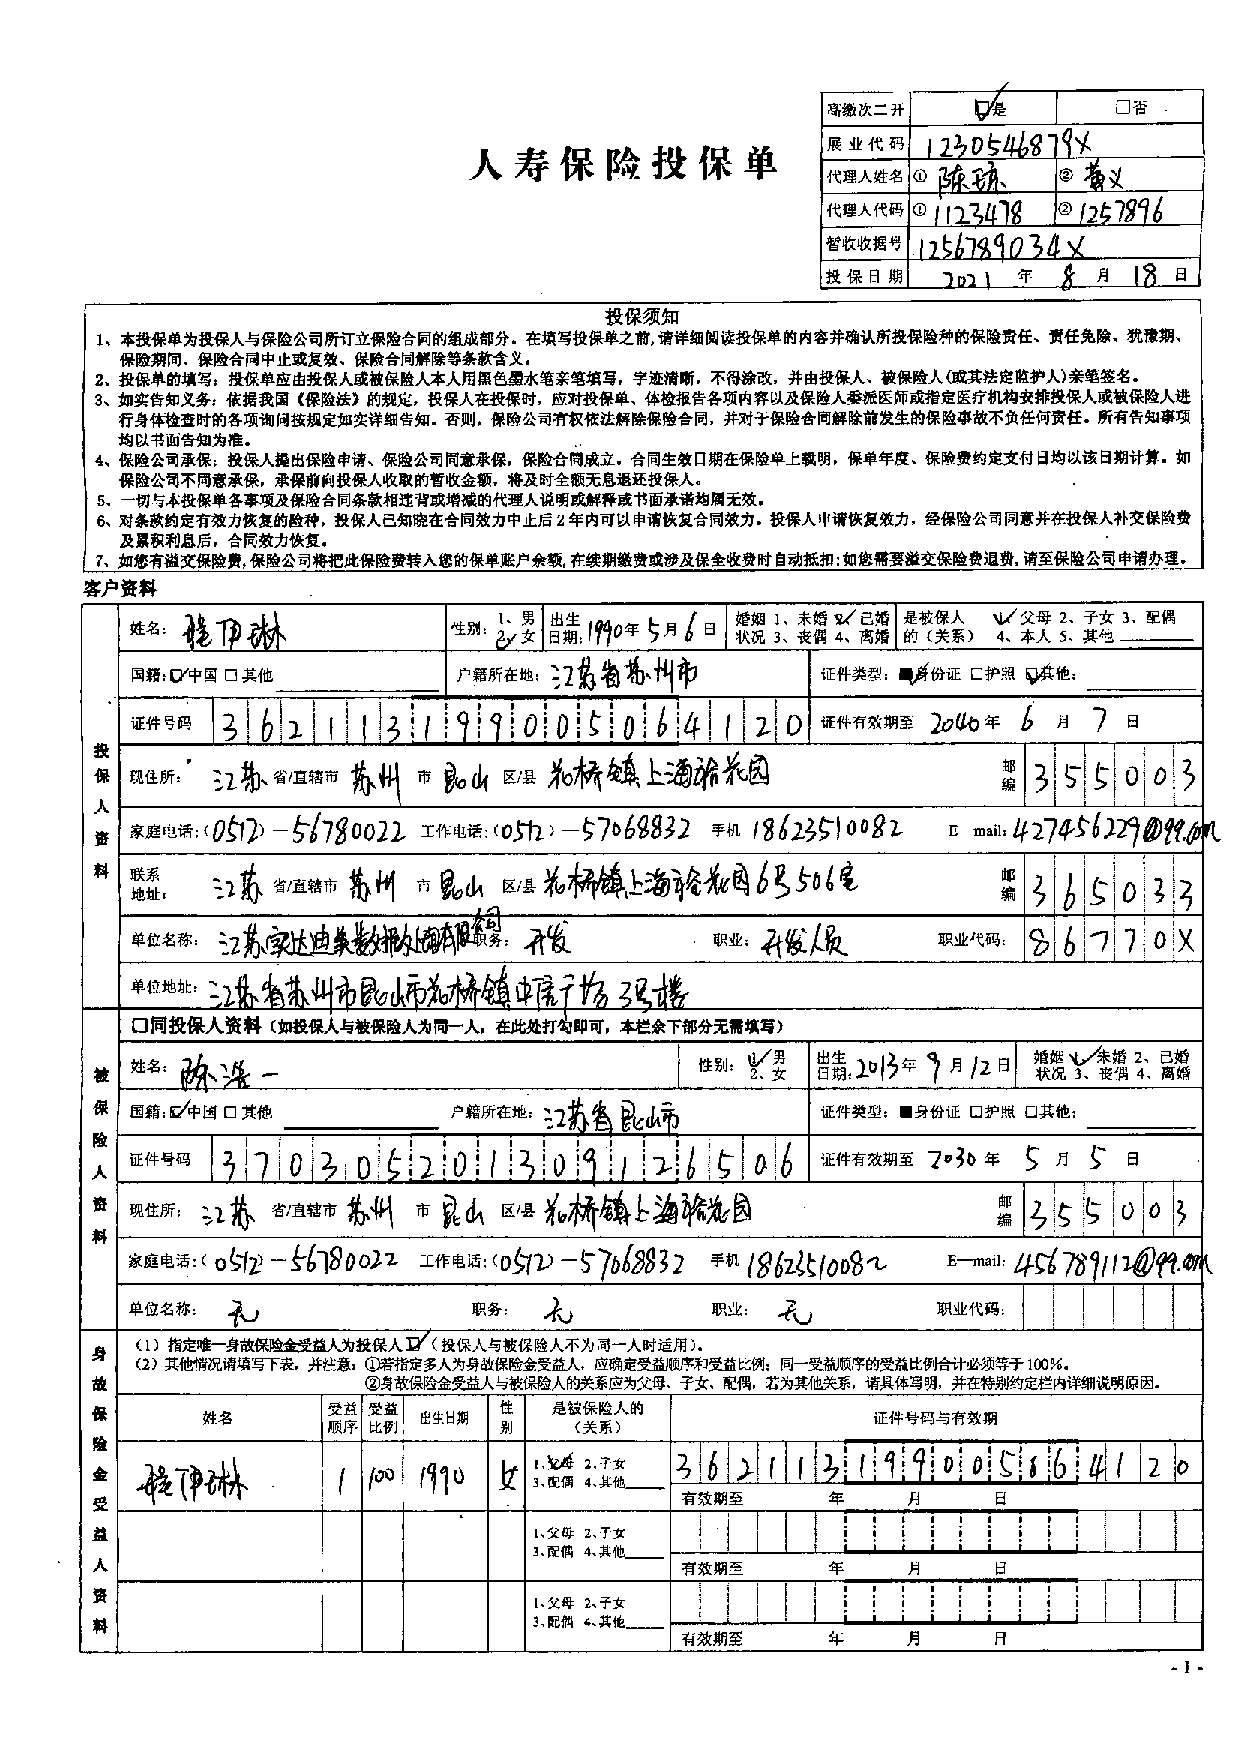 高缴次二开 是 否
人寿保险投保单
展业代码 1230546879X
代理人姓名 ① 陈琼 ② 黄义
代理人代码 ① 1123478 ② 1257896
暂收收据号 1256789034X
投保日期 2021 年 8 月 18 日
投保须知
1、本投保单为投保人与保险公司所订立保险合同的组成部分。在填写投保单之前,请详细阅读投保单的内容并确认所投保险种的保险责任、责任免除、犹豫期、
保险期间、保险合同中止或复效、保险合同解除等条款含义。
2、投保单的填写：投保单应由投保人或被保险人本人用黑色墨水笔亲笔填写，字迹清晰，不得涂改，并由投保人、被保险人(或其法定监护人)亲笔签名。
3、如实告知义务：依据我国《保险法》的规定，投保人在投保时，应对投保单、体检报告各项内容以及保险人委派医师或指定医疗机构安排投保人或被保险人进
行身体检查时的各项询问按规定如实详细告知。否则，保险公司有权依法解除保险合同，并对于保险合同解除前发生的保险事故不负任何责任。所有告知事项
均以书面告知为准。
4、保险公司承保：投保人提出保险申请、保险公司同意承保，保险合同成立。合同生效日期在保险单上载明，保单年度、保险费约定支付日均以该日期计算。如
保险公司不同意承保，承保前向投保人收取的暂收金额，将及时全额无息退还投保人。
5、一切与本投保单各事项及保险合同条款相违背或增减的代理人说明或解释或书面承诺均属无效。
6、对条款约定有效力恢复的险种，投保人已知晓在合同效力中止后2年内可以申请恢复合同效力。投保人申请恢复效力，经保险公司同意并在投保人补交保险费
及累积利息后，合同效力恢复。
7、如您有溢交保险费,保险公司将把此保险费转入您的保单账户余额,在续期缴费或涉及保全收费时自动抵扣;如您需要溢交保险费退费,请至保险公司申请办理。
客户资料
投保人资料
姓名： 程伊琳 性别： 1、男 2、女 出生日期： 1990年 5月 6日 婚姻状况 1、未婚 2、已婚 3、丧偶 4、离婚 是被保人的（关系） 1、父母 2、子女 3、配偶 4、本人 5、其他
国籍： 中国 其他 户籍所在地： 江苏省苏州市 证件类型： 身份证 护照 其他：
证件号码 362113199005064120 证件有效期至 2040 年 6 月 7 日
现住所： 江苏 省/直辖市 苏州 市 昆山 区/县 花桥镇上海裕花园 邮编 355003
家庭电话：(0512)-56780022 工作电话：(0512)-57068832 手机 18623510082 E mail: 427456229@qq.com
联系地址： 江苏 省/直辖市 苏州 市 昆山 区/县 花桥镇上海裕花园6号506室 邮编 365033
单位名称： 江苏实达迪美数据处理有限公司 职务： 开发 职业： 开发人员 职业代码： 86770X
单位地址： 江苏省苏州市昆山市花桥镇中信广场3号楼
被保险人资料
同投保人资料（如投保人与被保险人为同一人，在此处打勾即可，本栏余下部分无需填写）
姓名： 陈浩一 性别： 1、男 2、女 出生日期： 2013年 9月 12日 婚姻状况 1、未婚 2、已婚 3、丧偶 4、离婚
国籍： 中国 其他 户籍所在地： 江苏省昆山市 证件类型： 身份证 护照 其他：
证件号码 370305201309126506 证件有效期至 2030 年 5 月 5 日
现住所： 江苏 省/直辖市 苏州 市 昆山 区/县 花桥镇上海裕花园 邮编 355003
家庭电话：(0512)-56780022 工作电话：(0512)-57068832 手机 18623510082 E—mail: 456789112@qq.com
单位名称： 无 职务： 无 职业： 无 职业代码：
身故保险金受益人资料
（1）指定唯一身故保险金受益人为投保人（投保人与被保险人不为同一人时适用）。
（2）其他情况请填写下表，并注意：①若指定多人为身故保险金受益人，应确定受益顺序和受益比例；同一受益顺序的受益比例合计必须等于100%。
②身故保险金受益人与被保险人的关系应为父母、子女、配偶，若为其他关系，请具体写明，并在特别约定栏内详细说明原因。
姓名 受益顺序 受益比例 出生日期 性别 是被保险人的（关系） 证件号码与有效期
程伊琳 1 100 1990 女 1、父母 2、子女 3、配偶 4、其他 362113199005064120
有效期至 年 月 日
1、父母 2、子女
3、配偶 4、其他
有效期至 年 月 日
1、父母 2、子女
3、配偶 4、其他
有效期至 年 月 日
- 1 -